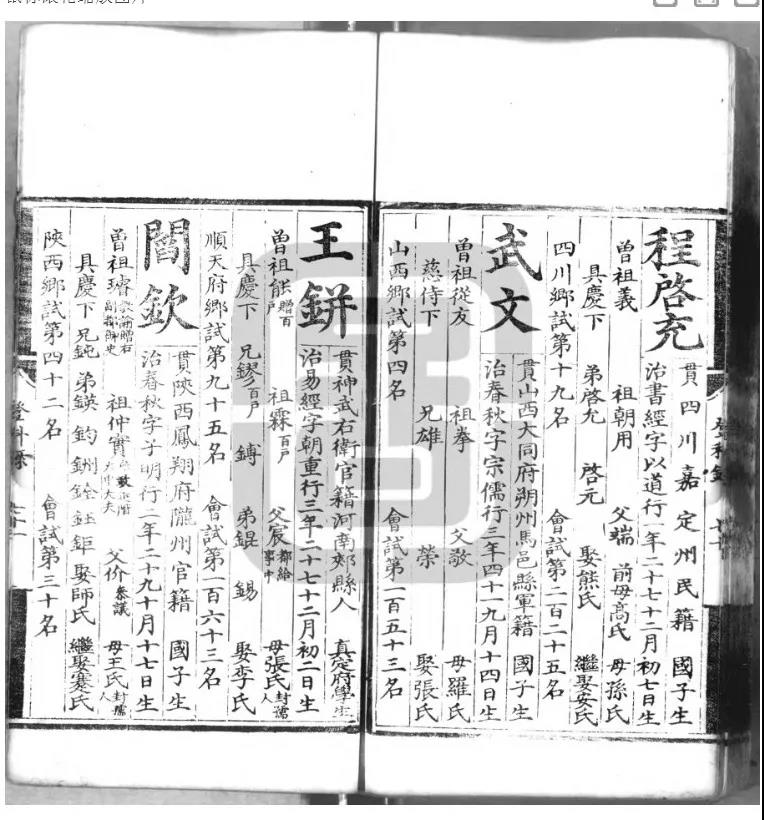 程啓充
貫四川嘉定州民籍 國子生
治書經字以道行一年二十七十二月初七日生
曾祖義 祖朝用 父端 前母高氏 母孫氏
具慶下 弟啓允 啓元 娶熊氏 繼娶安氏
四川鄉試第十九名 會試第二百二十五名
武文
貫山西大同府朔州馬邑縣軍籍 國子生
治春秋字宗儒行三年四十一九月十四日生
曾祖從友 祖拳 父敬 母羅氏
慈侍下 兄雄 榮 娶張氏
山西鄉試第四名 會試第一百五十三名
登科錄
王鉼
貫神武右衛官籍河南郟縣人 真定府學生
治易經字朝重行三年二十七十二月初二日生
曾祖能贈百戶 祖霖百戶 父宸都給事中 母張氏封孺人
具慶下 兄鏐百戶 鎛 弟錕 錫 娶李氏
順天府鄉試第九十五名 會試第一百六十三名
閻欽
貫陝西鳳翔府隴州官籍 國子生
治春秋字子明行二年二十九十月十七日生
曾祖璿 贈右副都御史 祖仲實 大中大夫 父价叅議 母王氏封孺人
具慶下 兄鈍 弟鍈 鈞 銂 銓 鈺 鉅 娶師氏 繼娶蹇氏
陝西鄉試第四十二名 會試第三十名
登科錄